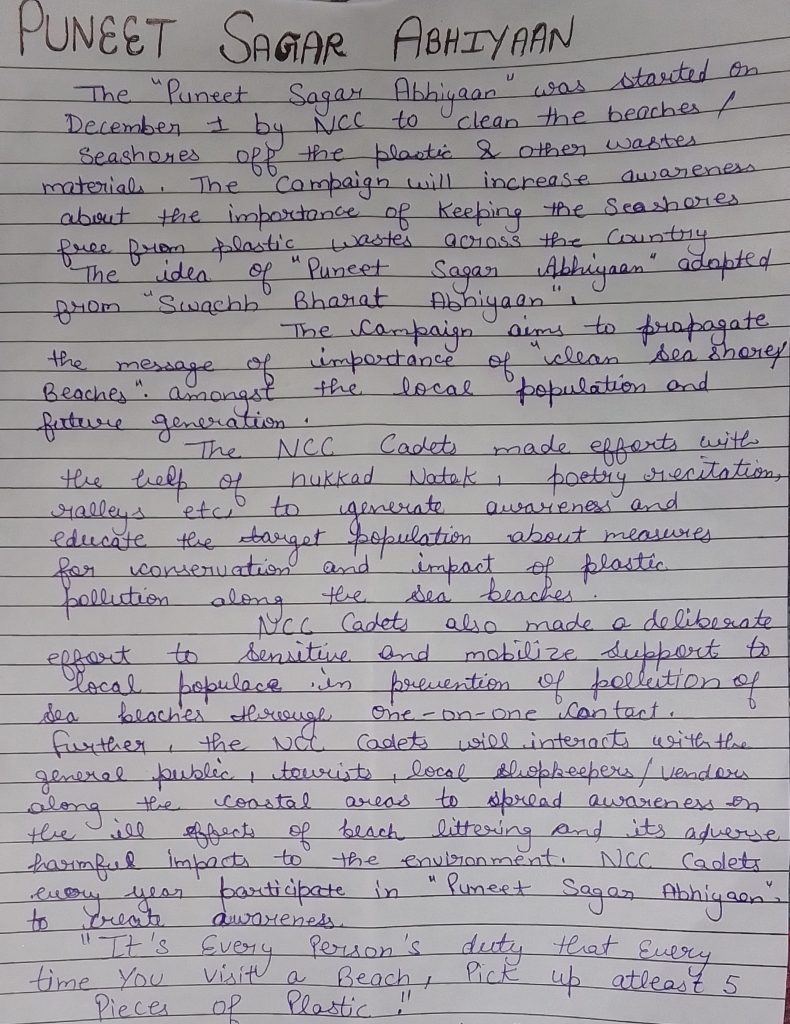 PUNEET SAGAR ABHIYAAN
The "Puneet Sagar Abhiyaan" was started on
December 1 by NCC to clean the beaches /
Seashores off the plastic & other wastes
materials. The Campaign will increase awareness
about the importance of Keeping the Seashores
free from plastic wastes across the Country
The idea of "Puneet Sagar Abhiyaan" adopted
from "Swachh Bharat Abhiyaan".
The Campaign aims to propagate
the message of importance of "clean sea shores/
Beaches". amongst the local population and
future generation.
The NCC Cadets made efforts with
the help of nukkad Natak, poetry recitation,
ralleys etc, to generate awareness and
educate the target population about measures
for conservation and impact of plastic
pollution along the sea beaches.
NCC Cadets also made a deliberate
effort to sensitive and mobilize support to
local populace in prevention of pollution of
sea beaches through one-on-one contact.
further, the NCC Cadets will interacts with the
general public, tourists, local shopkeepers/vendors
along the coastal areas to spread awareness on
the ill effects of beach littering and its adverse
harmful impacts to the environment. NCC Cadets
every year participate in "Puneet Sagar Abhiyaan".
to create awareness.
"It's Every Person's duty that Every
time You Visit a Beach, Pick up atleast 5
Pieces of Plastic!"